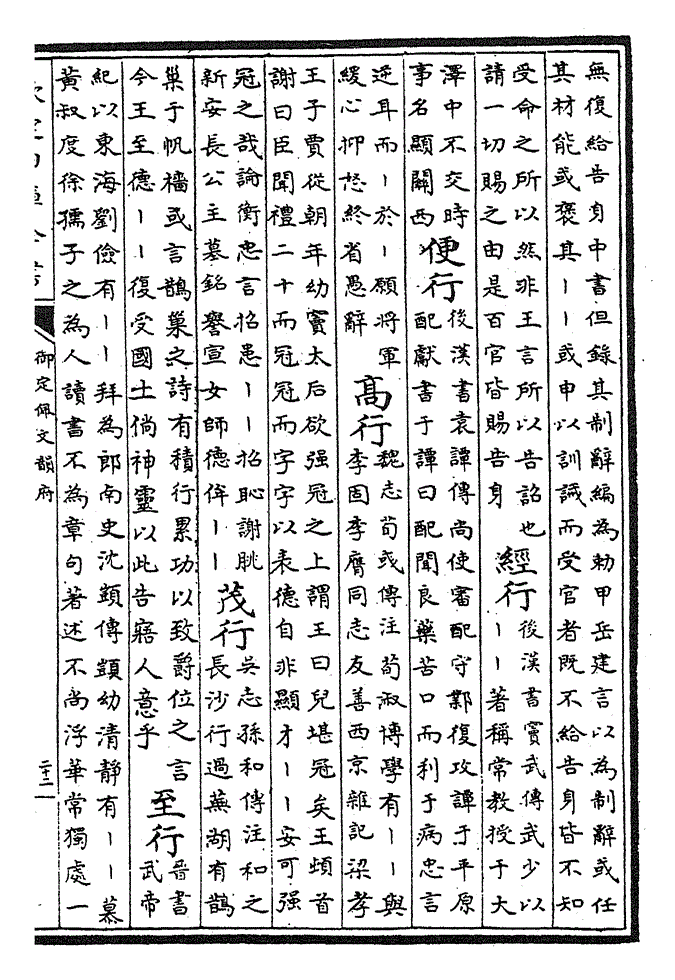 無復給告身中書但錄其制辭編為勅甲岳建言以為制辭或任
其材能或褒其丨丨或申以訓誡而受官者既不給告身皆不知
受命之所以然非王言所以告詔也
請一切賜之由是百官皆賜告身
經行
後漢書竇武傳武少以
丨丨著稱常教授于大
澤中不交時
事名顯關西
便行
後漢書袁譚傳尚使審配守鄴復攻譚于平原
配獻書于譚曰配聞良藥苦口而利于病忠言
逆耳而丨於丨願將軍
緩心抑怒終省愚辭
高行
魏志荀彧傳注荀淑博學有丨丨與
李固李膺同志友善西京雜記梁孝
王子賈從朝年幼竇太后欲强冠之上謂王曰兒堪冠矣王頓首
謝曰臣聞禮二十而冠冠而字字以表德自非顯才丨丨安可强
冠之哉論衡忠言招患丨丨招恥謝朓
新安長公主墓銘譽宣女師德侔丨丨
茂行
吳志孫和傳注和之
長沙行過蕪湖有鵲
巢于帆檣或言鵲巢之詩有積行累功以致爵位之言
今王至德丨丨復受國土倘神靈以此告寤人意乎
至行
晉書
武帝
紀以東海劉儉有丨丨拜為郎南史沈顗傳顗幼清靜有丨丨慕
黃叔度徐孺子之為人讀書不為章句著述不尚浮華常獨處一
欽定四庫全書
御定佩文韻府
二十二